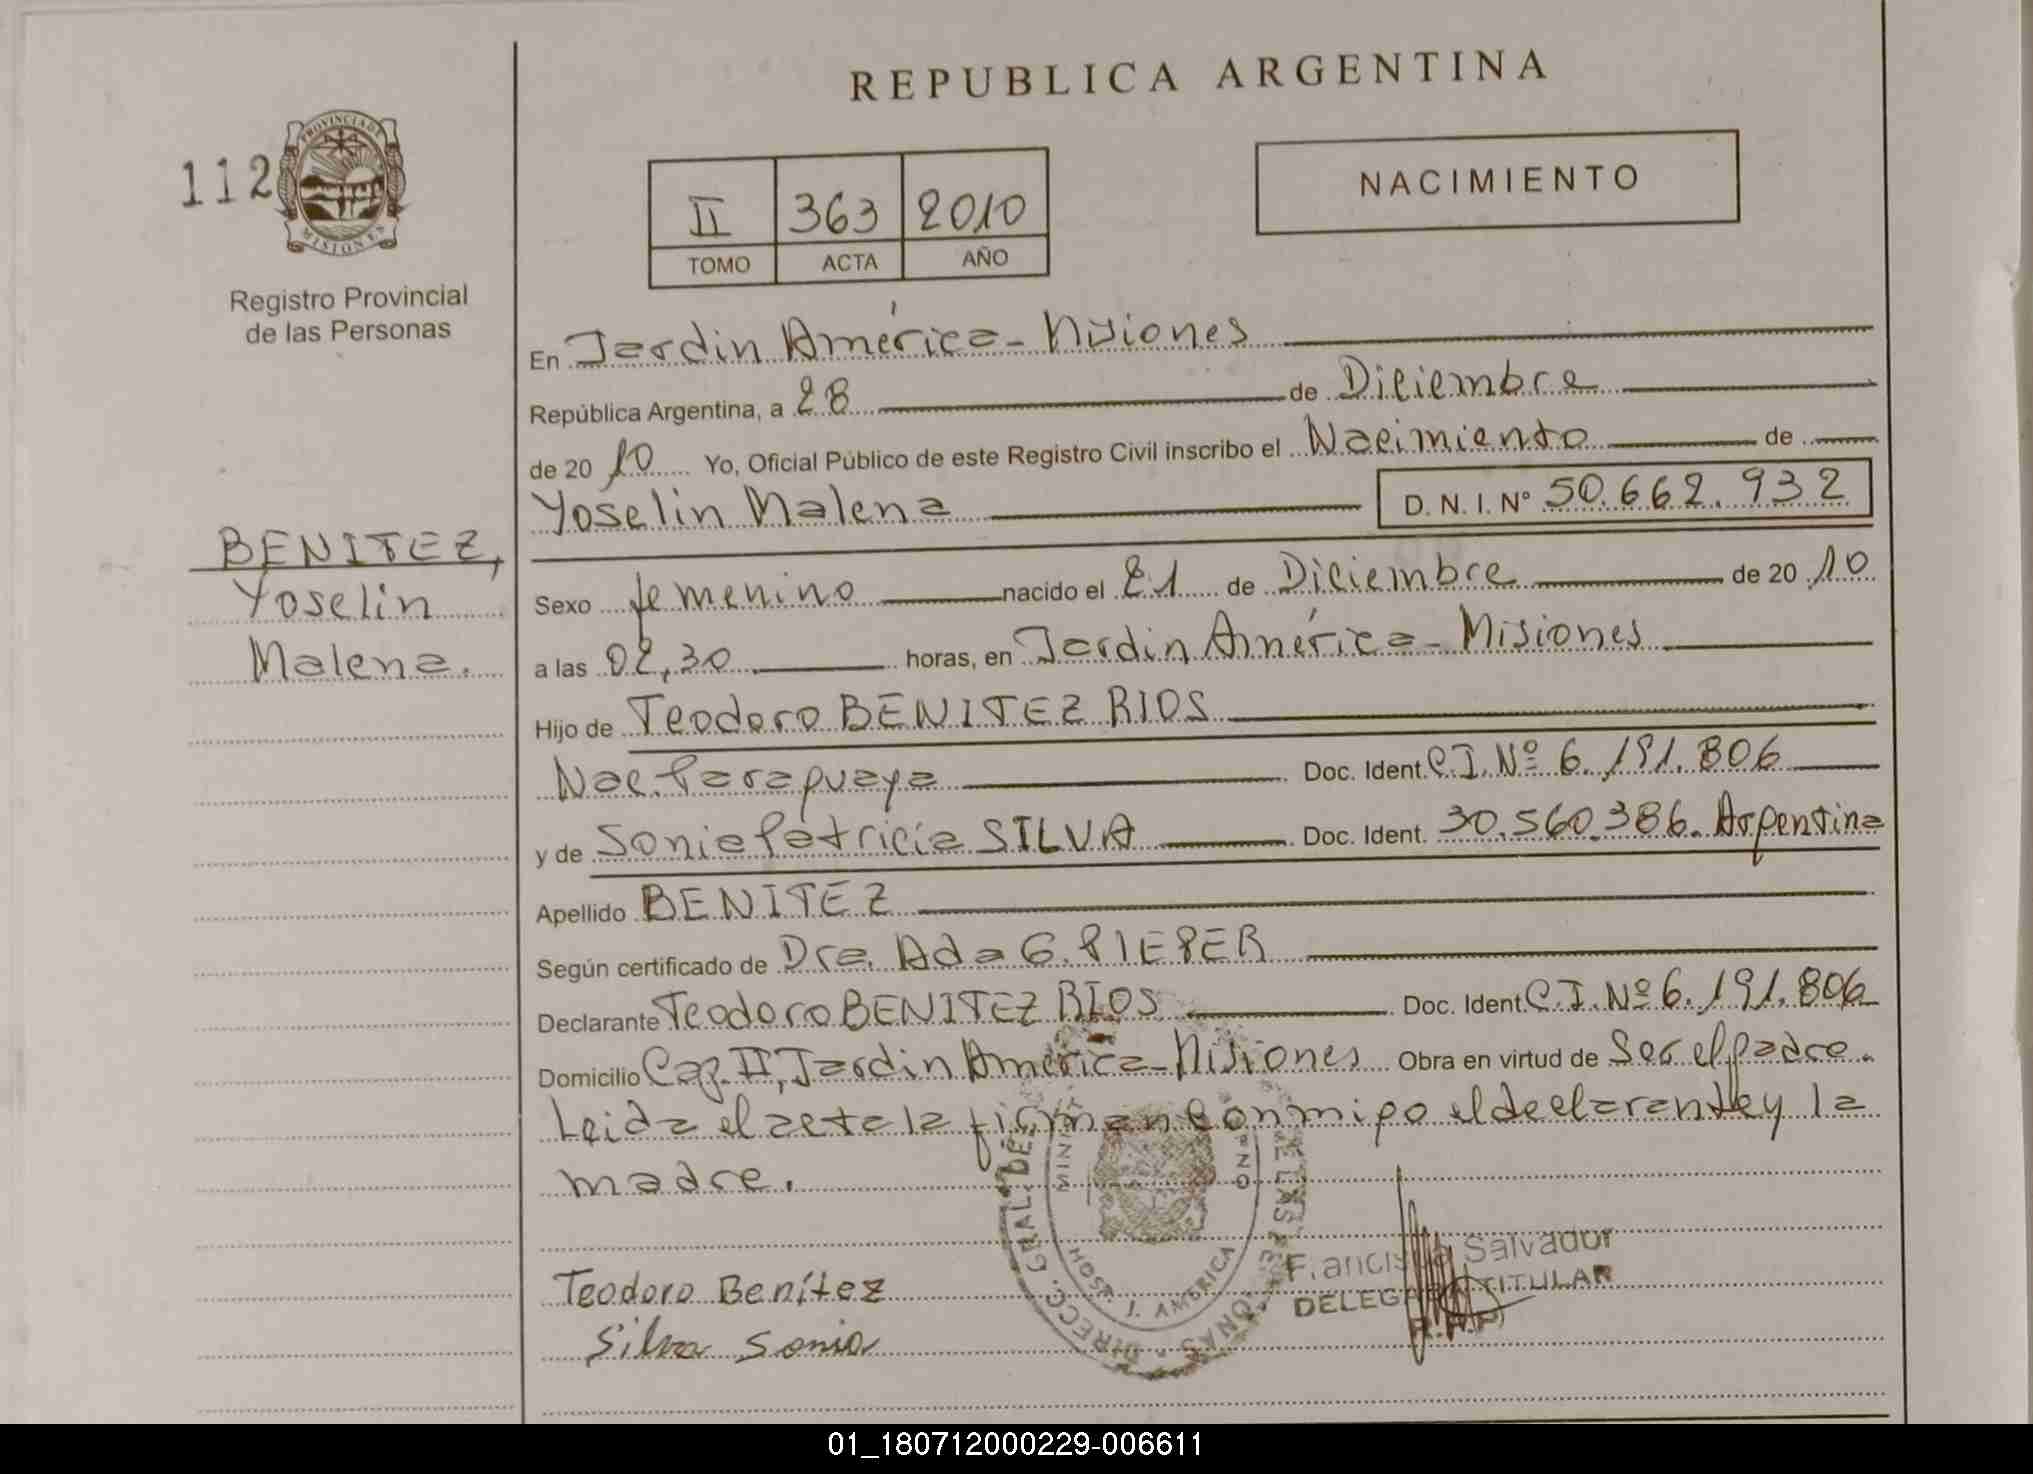 REPUBLICA ARGENTINA
112
PROVINCIA DE
MISIONES
Registro Provincial
de las Personas
II 363 2010
TOMO ACTA AÑO
NACIMIENTO
En Jardin América - Misiones
República Argentina, a 28 de Diciembre
de 20 10 Yo, Oficial Público de este Registro Civil inscribo el Nacimiento de
Yoselin Malena D.N.I.Nº 50.662.932
BENITEZ,
Yoselin
Malena.
Sexo femenino nacido el 21 de Diciembre de 20 10
a las 02,30 horas, en Jardin América - Misiones
Hijo de Teodoro BENITEZ RIOS
Nac. Paraguaya Doc. Ident. C.I. Nº 6.191.806
y de Sonia Patricia SILVA Doc. Ident. 30.560.386. Argentina
Apellido BENITEZ
Según certificado de Dra. Ada G. PIEPER
Declarante Teodoro BENITEZ RIOS Doc. Ident. C.I. Nº 6.191.806
Domicilio Cap. II, Jardin América - Misiones Obra en virtud de Ser el padre.
Leida el acta la firman conmigo el declarante y la
madre.
DIRECC. GRAL. DE
J. AMERICA
Teodoro Benítez
Silva Sonia
Salvador
TITULAR
01_180712000229-006611